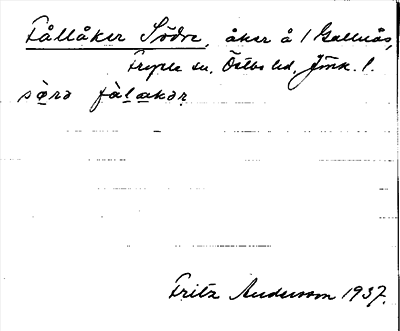 Fållåker Södre, åker å 1 Gallnås,
Fryele sn, Östbo hd, Jönk. l.
sørə fålakər
Fritz Andersson 1937.